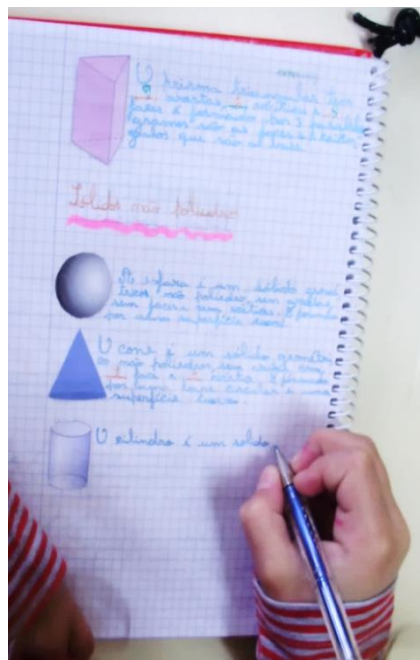 O prisma triangular tem
9 arestas, 6 vértices e 5
faces é formado por 3 paralelo
gramos são as faces e 2 triân
gulos que são as bases.
Sólidos não poliedros
A esfera é um sólido geomé
trico, não poliedro, sem arestas,
sem faces e sem vértices. É formada
por uma superfície curva.
O cone é um sólido geométri
co não poliedro, sem arestas com
1 face e 1 vértice. É formado
por uma base circular e uma
superfície curva.
O cilindro é um sólido